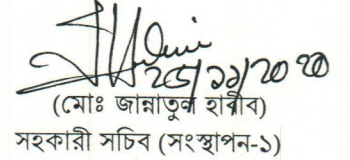 ২৫/১১/২০২০
(মোঃ জান্নাতুল হাবীব)
সহকারী সচিব (সংস্থাপন-১)